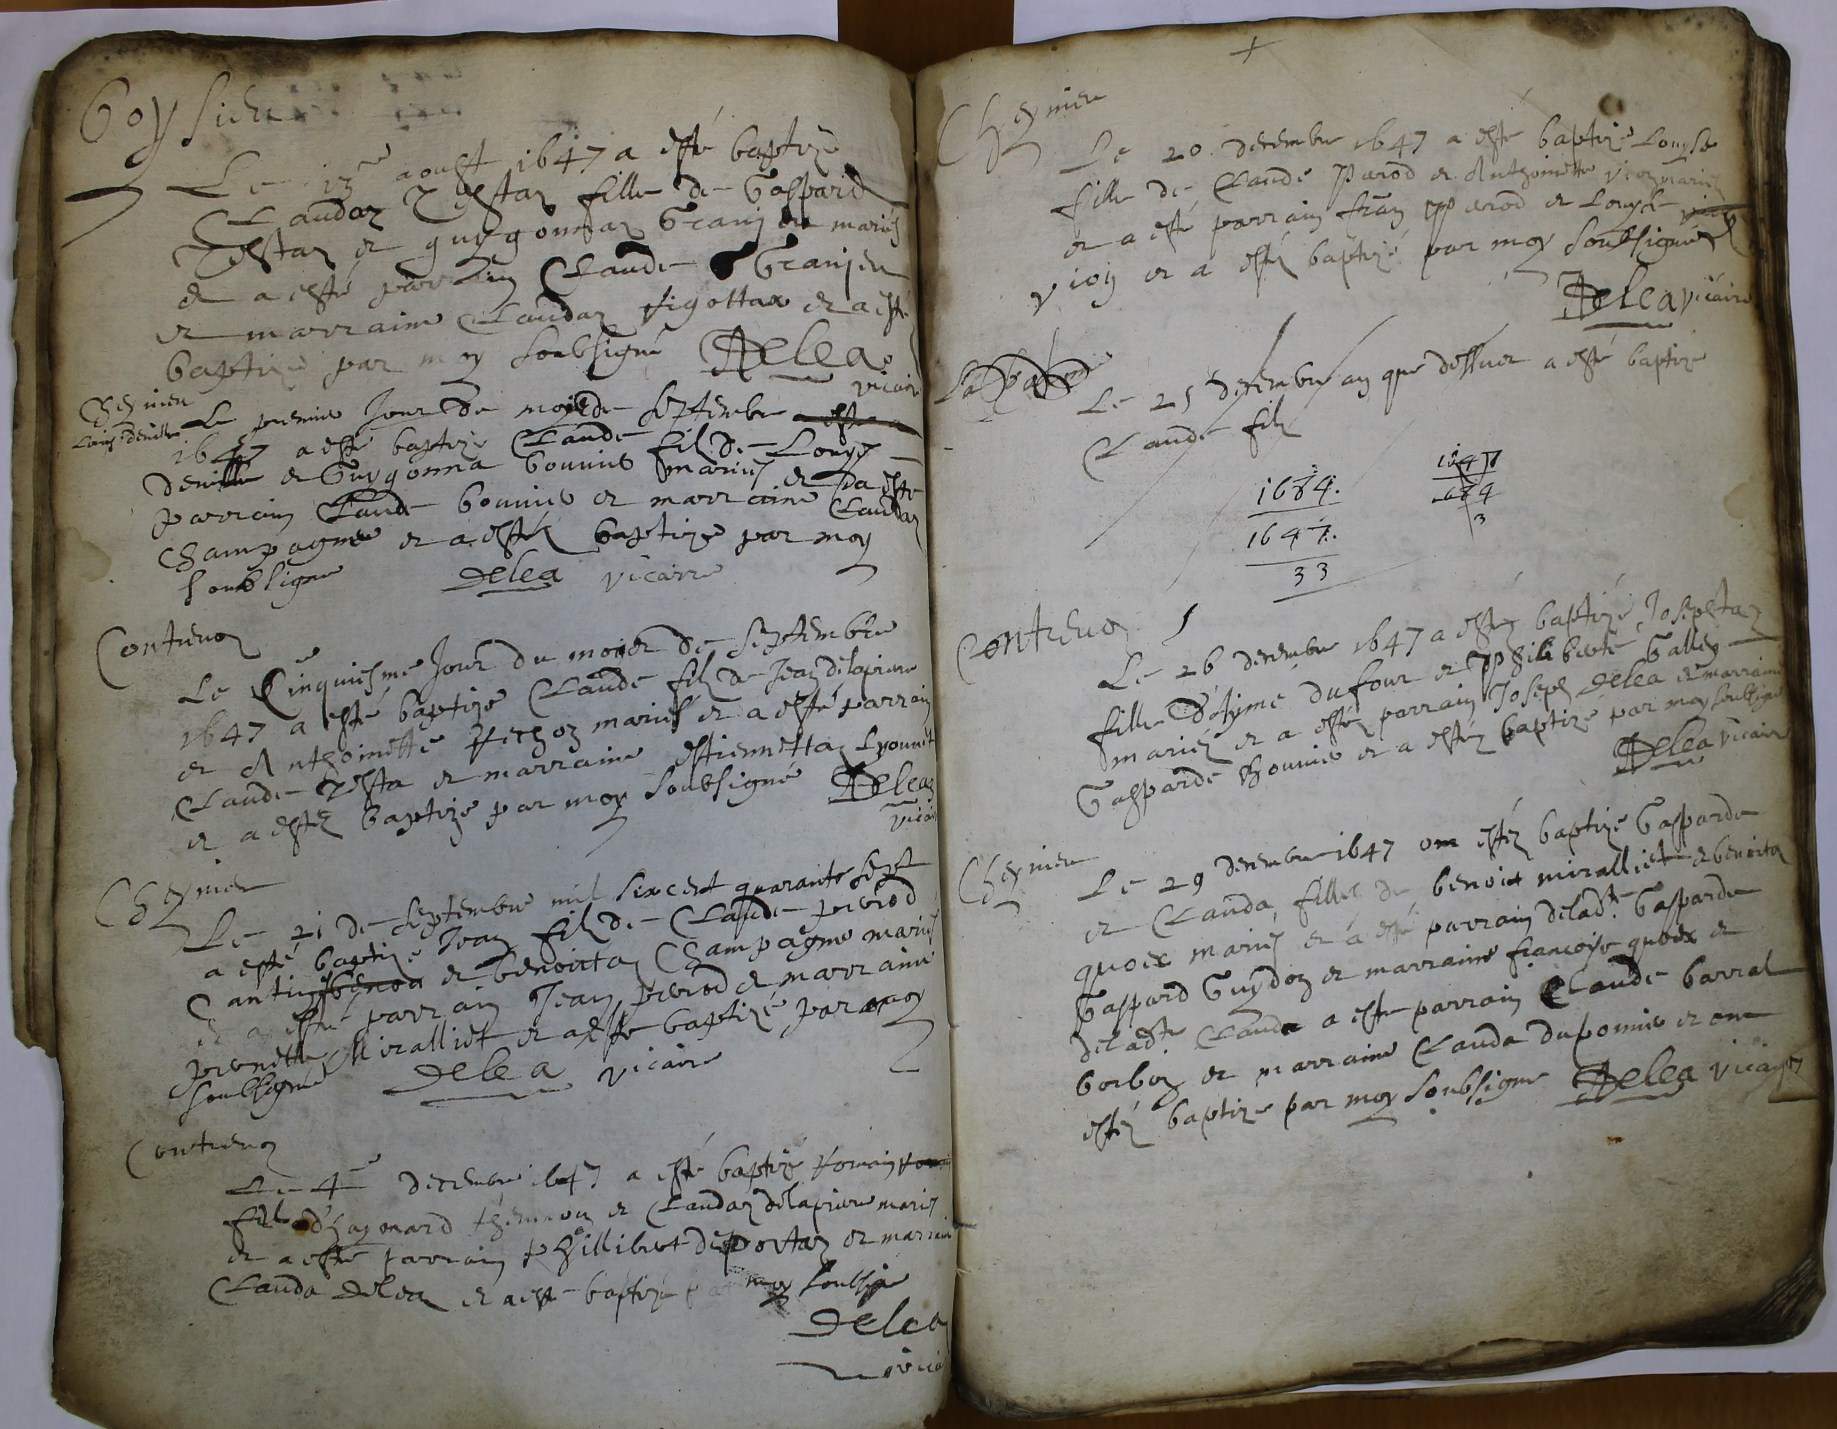 Boysieu
Le 13e aoust 1647 a esté baptize
Claudaz Testaz fille de Gaspard
Testaz et guygonnaz Granjon mariés
et a esté parrain Claude Granjeu
et marraine Claudaz Figottax et a esté
baptize par moy soubsigné Delea
vicaire
Cheynieu
Louys deville
Le premier Jour du mois de septembre
1647 a esté baptize Claude filz de Louys
deville et Guygonna bonnins mariés et a esté
parrain Claude bonnins et marraine Claudaz
Champagne et a estéz baptize par moy
soubsigne Delea vicaire
Contrevoz
Le Cinquiesme Jour du moiet de septembre
1647 a esté baptize Claude filz de Jean delapierre
et Anthoinette mariés et a esté parrain
Claude Testa et marraine estiennetta Lyonnet
et a estéz baptize par moy soubsigné Delea
vicaire
Cheynieu
Le 21 de septembre mil six cent quarante sept
a esté baptize Jean filz de Claude perrod
Cantin et benoictaz Champagne mariés
et a esté parrain Jean perrod et marraine
pernette Miralliet et a esté baptizé par moy
soubsigné Delea vicaire
Contrevoz
Le 4e decembre 1647 a esté baptizé Romain
filz d'haymard et Claudaz delapierre mariés
et a esté parrain Phillibert deportaz et marraine
Clauda Delea et a esté baptizé par moy soubsigne
Delea
vicaire
Cheynieu
Le 20 decembre 1647 a esté baptize Louyse
fille de Claude Parod et Anthoinette mariés
et a esté parrain fran Parod et Louyse
et a estéz baptizé par moy soubsigné
Delea vicaire
Le 25 decembre an que dessus a esté baptize
Claude filz
1684.
1647.
33
1647
3
Contrevoz
Le 26 decembre 1647 a estéz baptizé Josephtaz
fille d'Aymé dufour et Philiberte Galley
mariéz et a estéz parrain Joseph Delea et marraine
Gasparde Bonnins et a estéz baptize par moy soubsigne
Delea vicaire
Cheynieu
Le 29 decembre 1647 ont estéz baptize Gasparde
et Clauda filles de benoict miralliet et benoita
quoex mariés et a esté parrain deladte Gasparde
Gaspard Guydoz et marraine françoise quoex et
deladte Claude a este parrain Claude barrat
borboz et marraine Clauda duponnis et ont
estéz baptize par moy soubsigne Delea vicaire